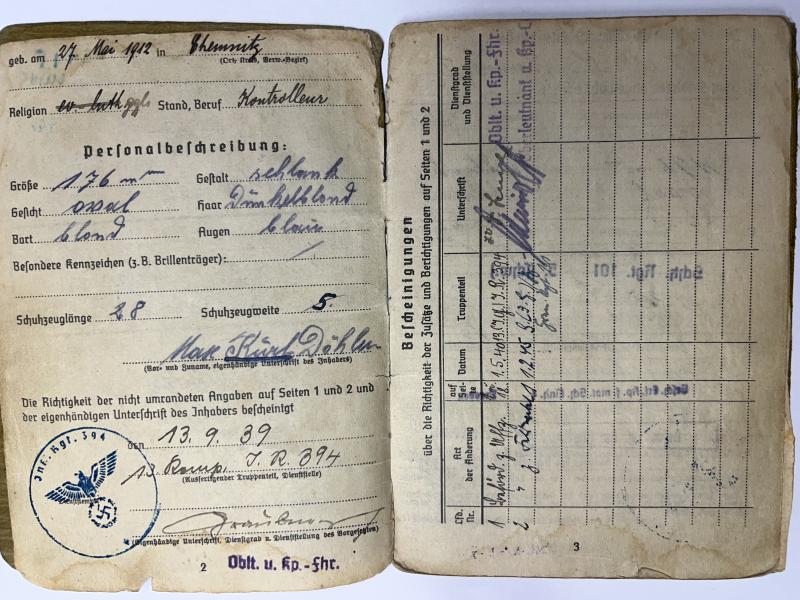 geb. am 27. Mai 1912 in Chemnitz
(Ort, Kreis, Verw.-Bezirk)
Religion ev-luth ggl. Stand, Beruf Kontrolleur
Personalbeschreibung:
Größe 176 m Gestalt schlank
Gesicht oval Haar Dunkelblond
Bart blond Augen blau
Besondere Kennzeichen (z. B. Brillenträger): /
Schuhzeuglänge 28 Schuhzeugweite 5.
Max Kurt Döhler
(Vor- und Zuname, eigenhändige Unterschrift des Inhabers)
Die Richtigkeit der nicht umrandeten Angaben auf Seiten 1 und 2 und
der eigenhändigen Unterschrift des Inhabers bescheinigt
den 13. 9. 39
13. Komp. I. R. 394
(Ausfertigender Truppenteil, Dienststelle)
Inf. Rgt. 394
(Eigenhändige Unterschrift, Dienstgrad u. Dienststellung des Vorgesetzten)
2 Oblt. u. Kp.-Fhr.
Bescheinigungen
über die Richtigkeit der Zusätze und Berichtigungen auf Seiten 1 und 2
Lfd. Nr.
Art der Änderung
auf Seite
Datum
Truppenteil
Unterschrift
Dienstgrad und Dienststellung
1 Beförd. z. Uffz. 1. 5. 40 13./I.R. 394 Oblt. u. Kp.-Fhr.
2 " z. 1 1. 2. 45 Oberleutnant u. Kp.-
Sch. Rgt. 101
3